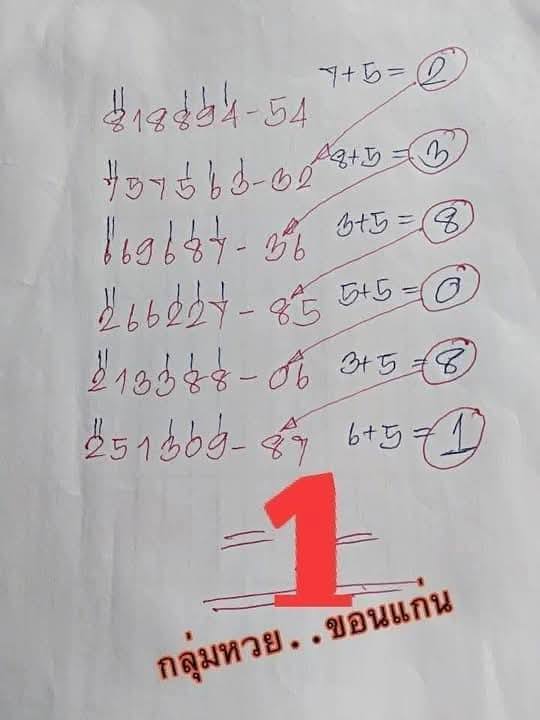 7+5=2
818894-54
8+5=3
757563-32
3+5=8
669687-36
5+5=0
266227-85
3+5=8
213388-06
6+5=1
251309-87
=1=
กลุ่มหวย..ขอนแก่น